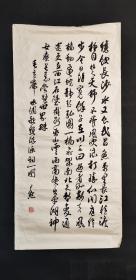 纔飲長沙水又食武昌魚萬里長江橫渡
極目楚天舒不管風吹浪打勝似閑庭信
步今日得寬餘子在川上曰逝者如斯夫風
檣動龜蛇靜起宏圖一橋飛架南北天塹變通
途更立西江石壁截斷巫山雲雨高峽出平湖神
女應無恙當驚世界殊
毛主席水調歌頭游泳詞一闋